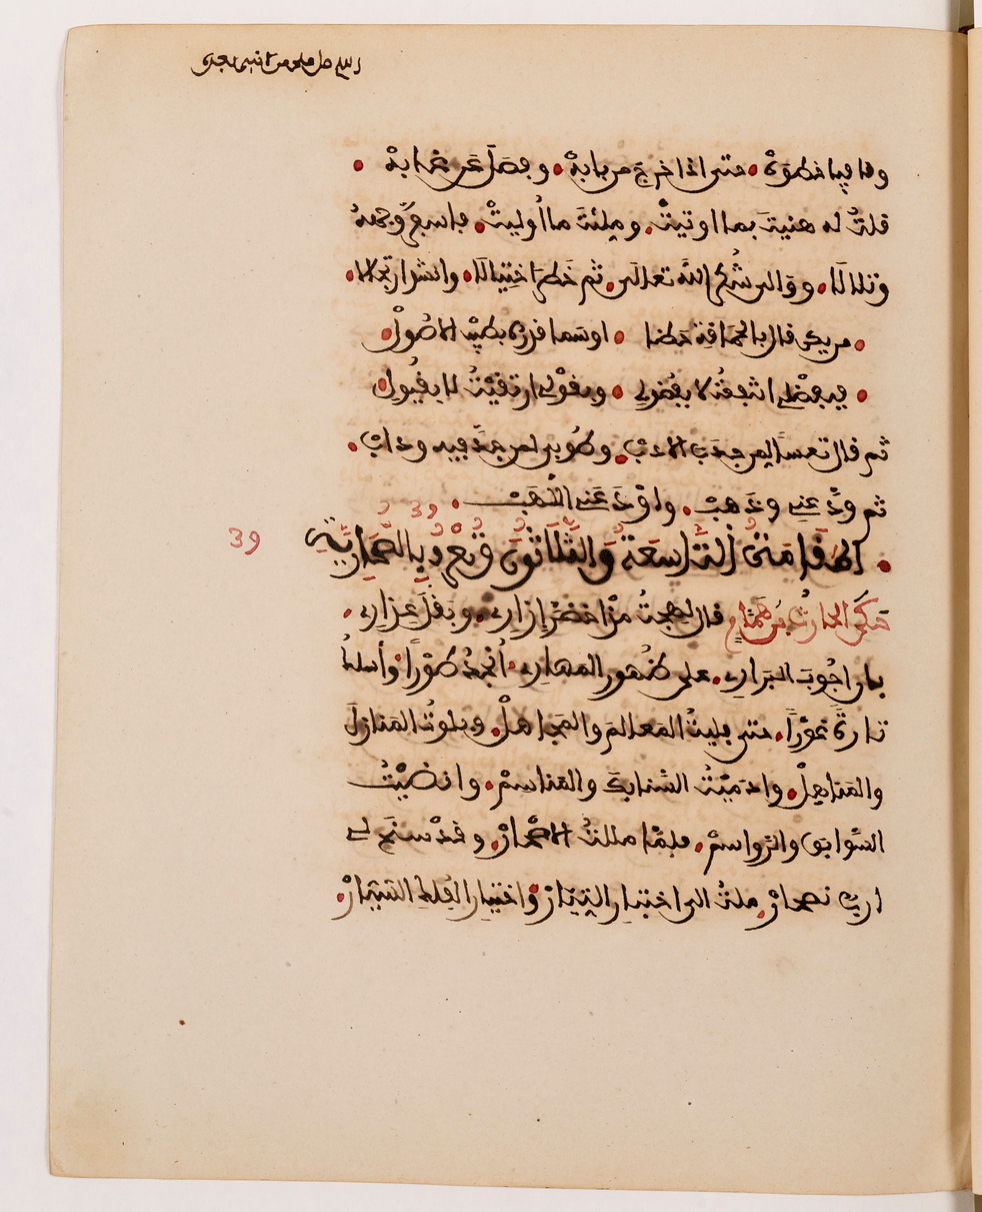 وقافيا خطوه حتى اذا خرج من بابه وفصل عن غابه
قلت له هنيت بما اوتيت ومليت ما اوليت فاسفر وجهه
وتلالا ووالى شكر الله تعالى ثم خطر اختيالا وانشد ارتجالا
من يكن نال بالحماقة حظا او سما قدره بطيب الاصول
فبفضلي انتفعت لا بفضولي وبقولي ارتفيت لا بقيولي
ثم قال تعسا لمن جدب الادب وطوبى لمن جد فيه وداب
ثم ودعني وذهب واودعني اللهب
39
المقامة التاسعة والثلاثون وتعرف بالصحارية
39
حكى الحارث بن همام قال لهجت مذ اخضر ازاري وبقل عذاري
بان اجوب البراري على ظهور المهاري انجد طورا واسلك
تارة غورا حتى فليت المعالم والمجاهل وبلوت المنازل
والمناهل وادميت السنابك والمناسم وانضيت
السوابق والرواسم فلما مللت الاصحار وقد سنح لي
ارب بصحار ملت الى اختبار التيار واختيار الفلك السيار